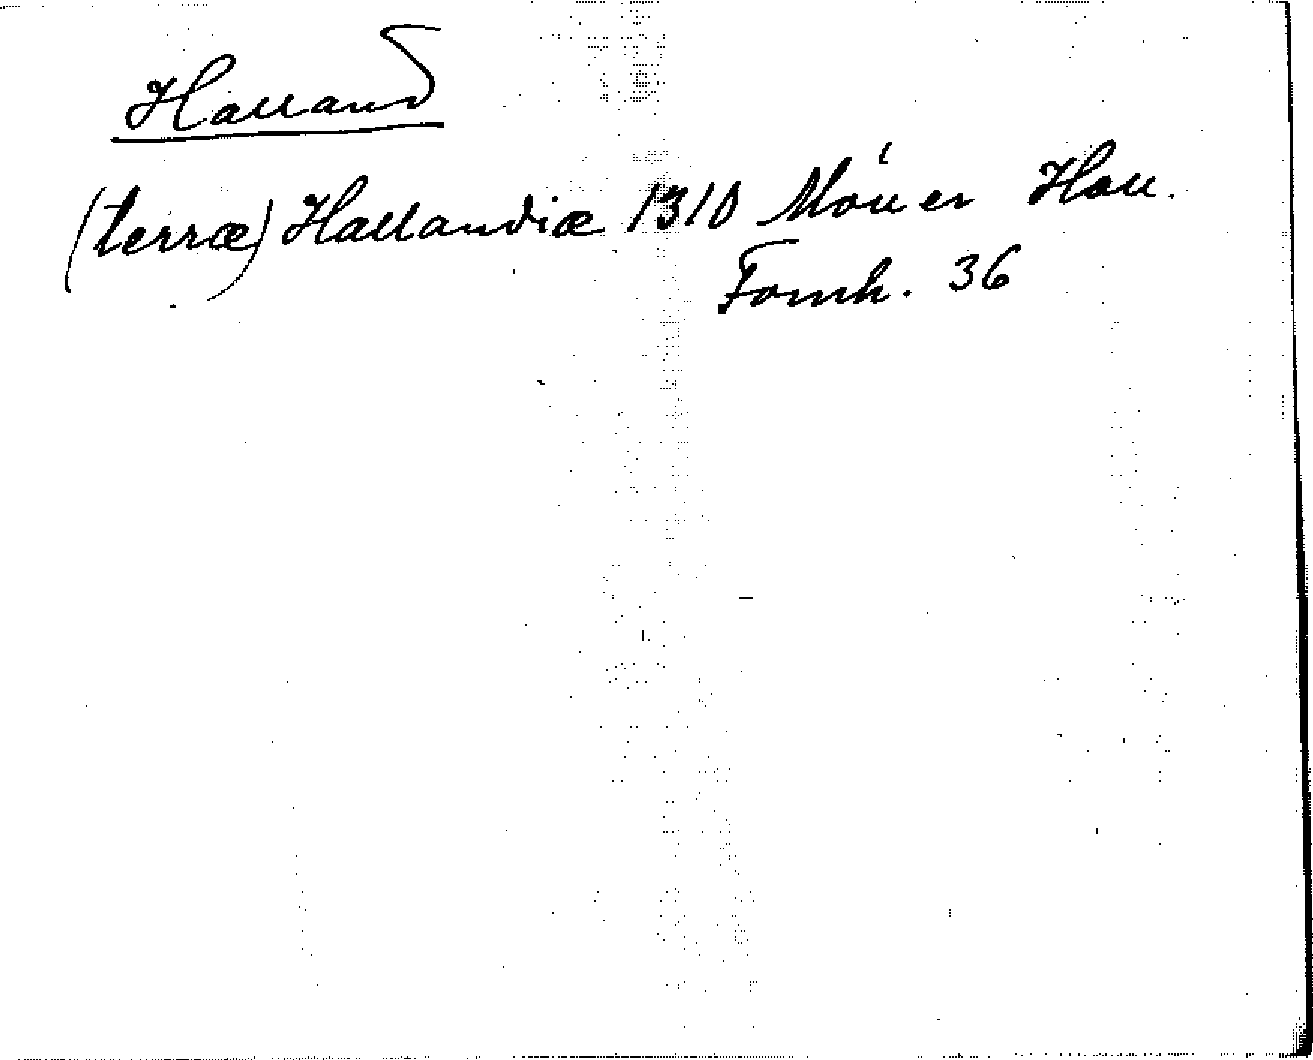 Halland
(terræ) Hallandiæ 1310 Möller Hall.
Fornh. 36